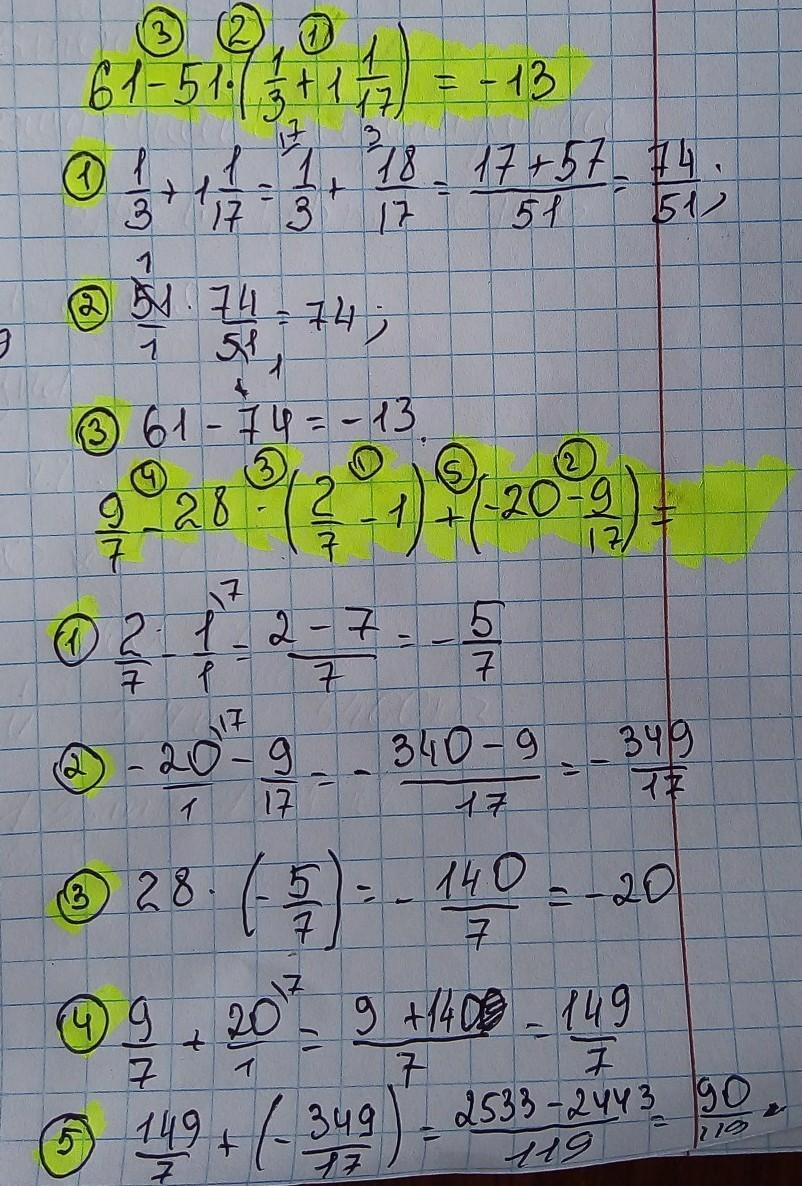 ③ ② ①
61 - 51 · (1/3 + 1 1/17) = -13
① 1/3 + 1 1/17 = 1/3 \17 + 18/17 \3 = (17 + 57)/51 = 74/51;
② 51/1 · 74/51 = 74;
③ 61 - 74 = -13.
④ ③ ① ⑤ ②
9/7 - 28 · (2/7 - 1) + (-20 - 9/17) =
① 2/7 - 1/1 \7 = (2 - 7)/7 = - 5/7
② - 20/1 \17 - 9/17 = - (340 - 9)/17 = - 349/17
③ 28 · (- 5/7) = - 140/7 = -20
④ 9/7 + 20/1 \7 = (9 + 140)/7 = 149/7
⑤ 149/7 + (- 349/17) = (2533 - 2443)/119 = 90/119.